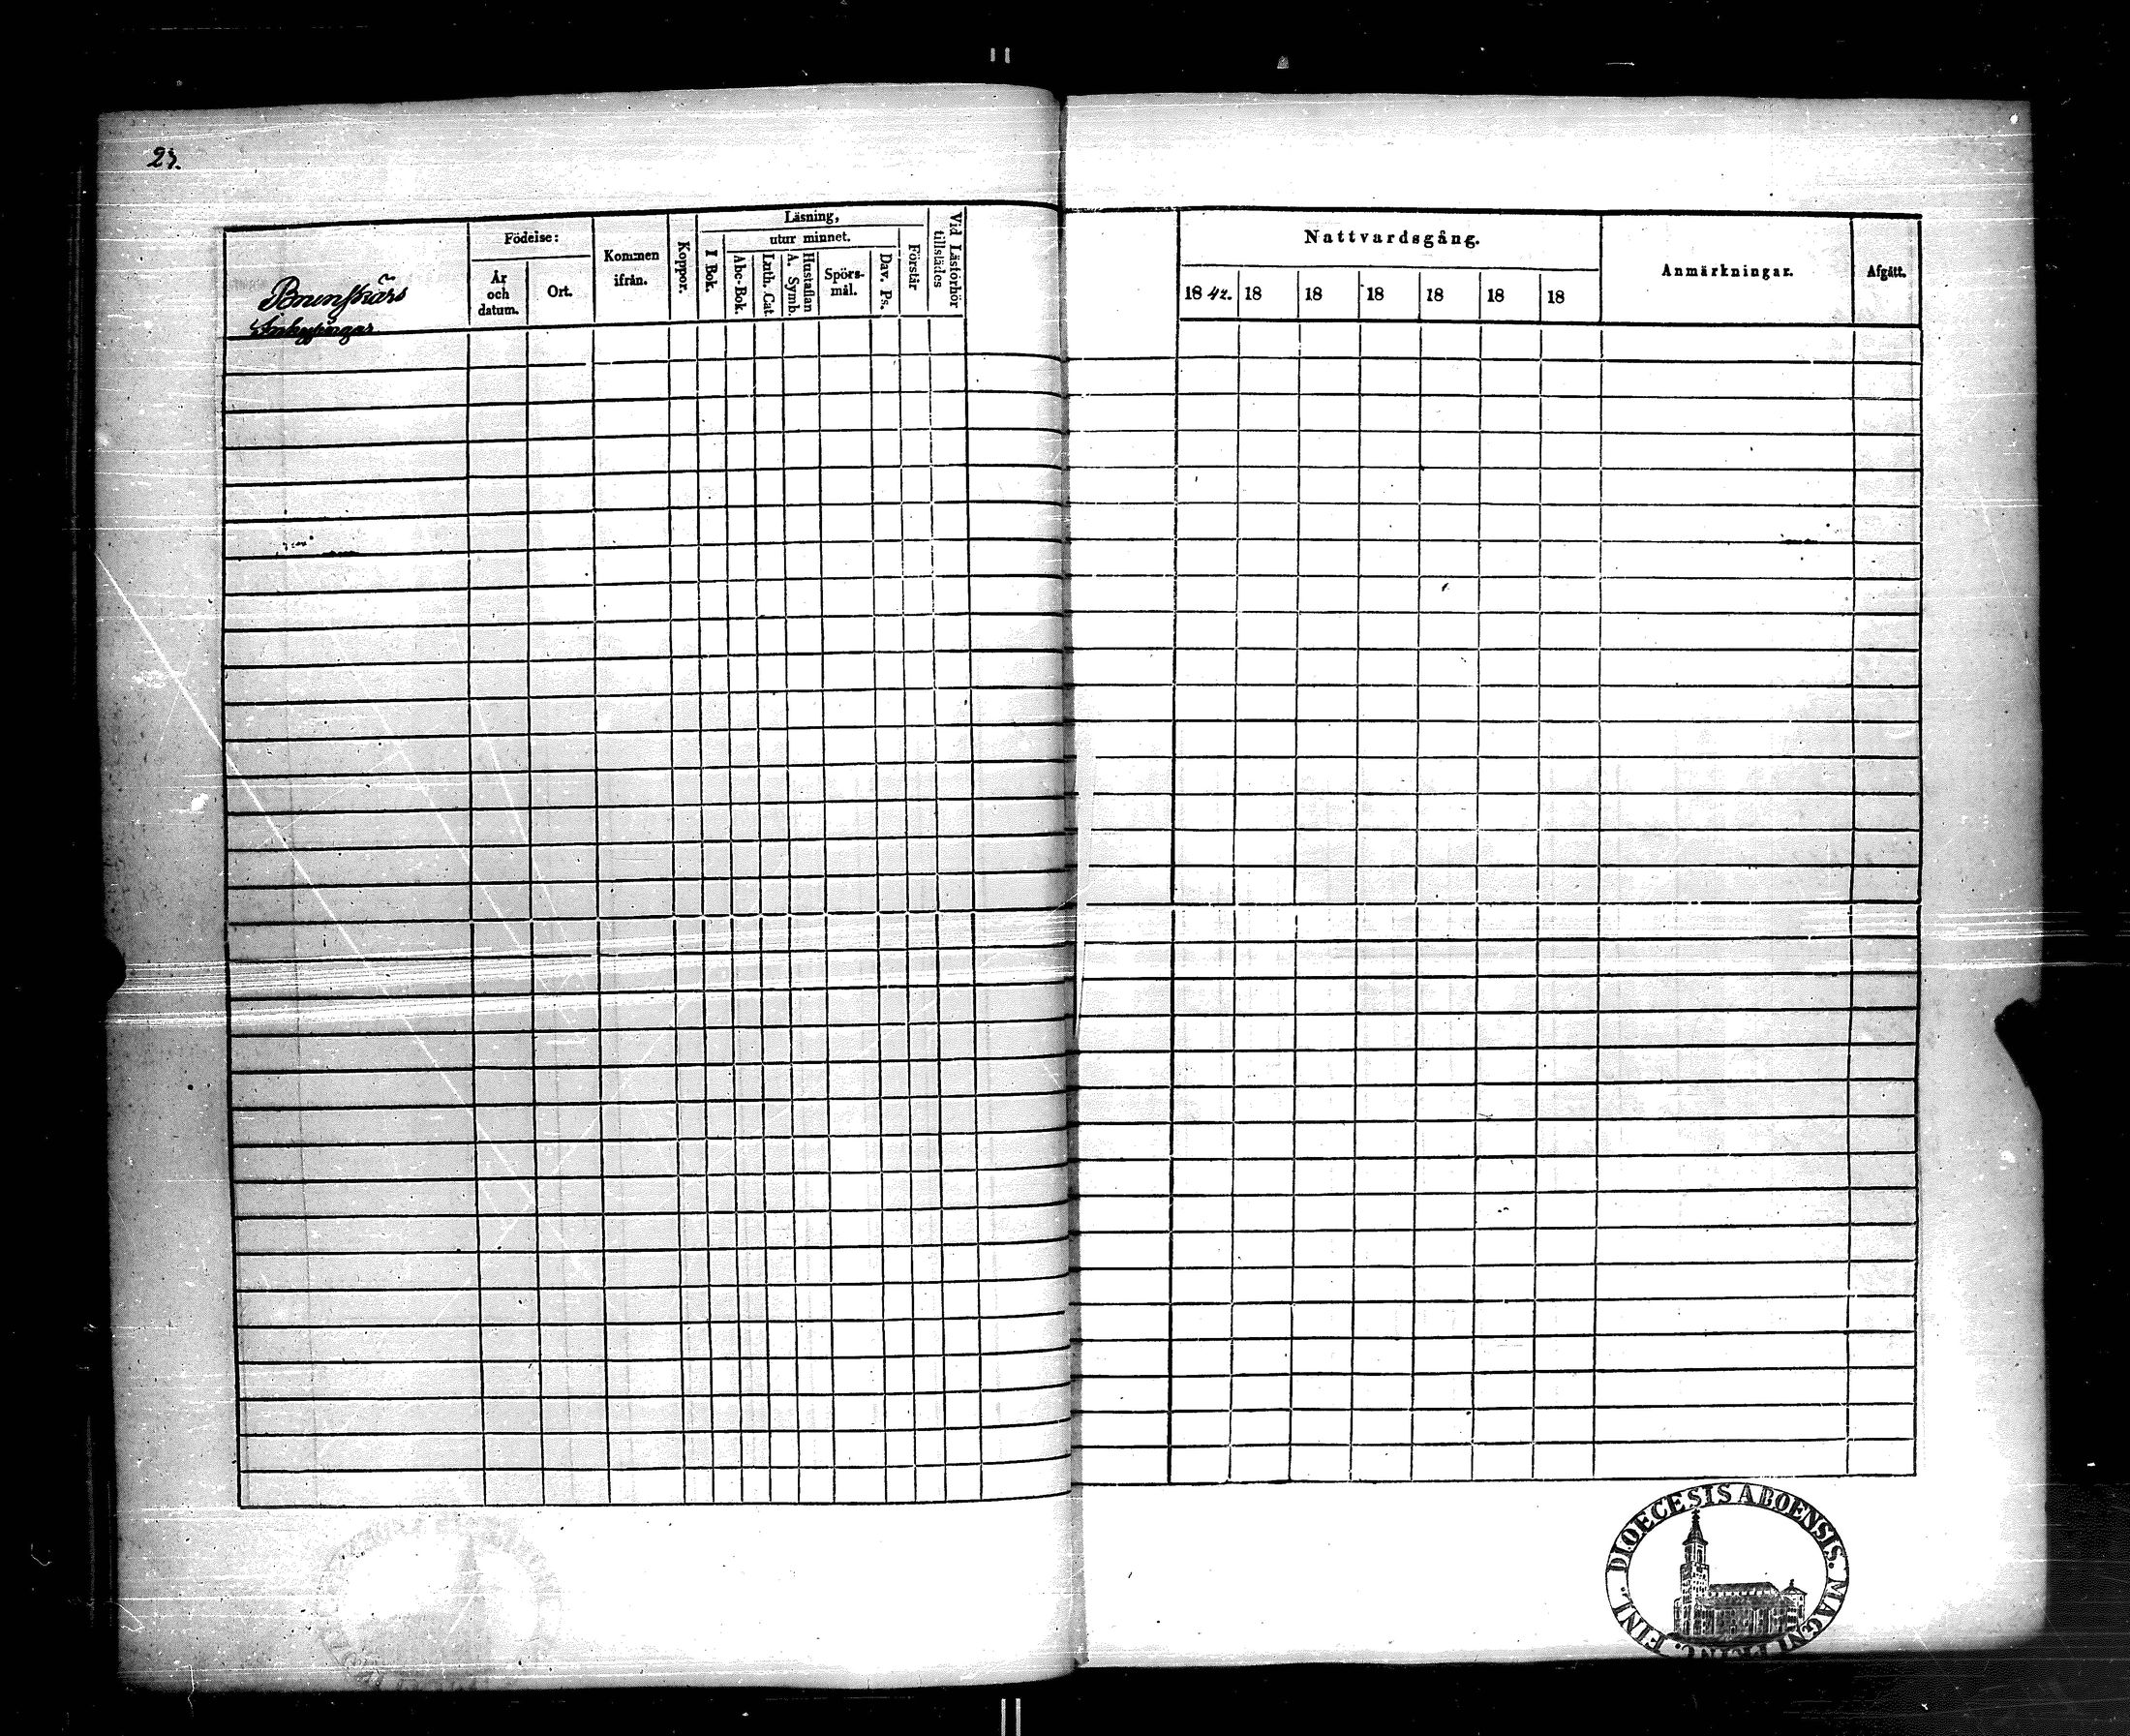 23.
Brunskärs
Inhysingar
Födelse:
År
och
datum.
Ort.
Kommen
ifrån.
Koppor.
Läsning,
I Bok.
utur minnet.
Abc-Bok.
Luth. Cat.
A. Symb.
Hustaflan
Spörs-
mål.
Dav. Ps.
Förstår
Vid Läsförhör
tillstädes
Nattvardsgång.
18 42. 18 18 18 18 18 18
Anmärkningar.
Afgått.
DIOECESIS ABOENSIS. MAGNI FINL.